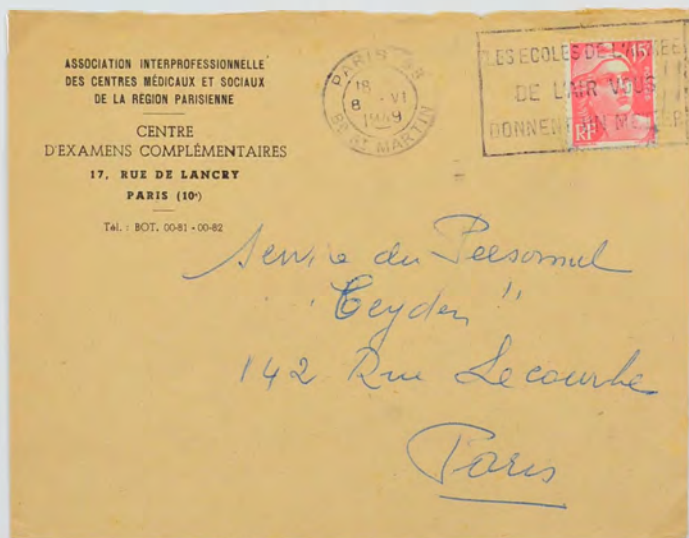 ASSOCIATION INTERPROFESSIONNELLE
DES CENTRES MÉDICAUX ET SOCIAUX
DE LA RÉGION PARISIENNE
CENTRE
D'EXAMENS COMPLÉMENTAIRES
17, RUE DE LANCRY
PARIS (10e)
Tél. : BOT. 00-81 - 00-82
PARIS
18
8 -VI
1949
BD ST MARTIN
LES ECOLES DE L'ARMEE
DE L'AIR VOUS
DONNENT UN METIER
15F
RF
Service du Personnel
"Ceyden"
142 Rue Lecourbe
Paris